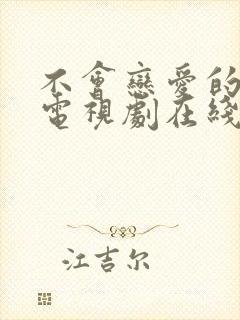 不會戀愛的
電視劇在綫
江吉尔